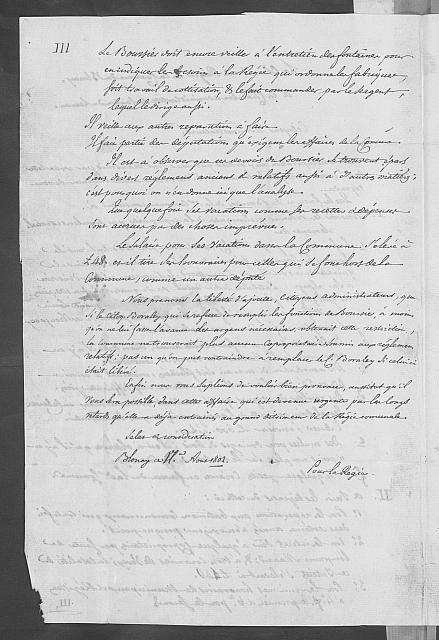 III
Le Boursiés doit encore veiller à l'entretien des fontaines pour
en indiquer le besoin à la Régie qui ordonne les fabriques,
soit travail de cottisation, & le fait commander, par le sergent,
lequel le dirige aussi.
Il veille aux autres reparations à faire.
Il fait partie des députations qu'exigent les affaires de la Comune
Il est à observer que ces devoirs du Boursiés se trouvent épars
dans divers réglemens anciens & relatifs aussi à d'autres matières;
c'est pourquoi on n'en donne ici que l'analyse.
quelque fois ses vacations comme ses recettes & dépenses
sont accrues par des choses imprévues.
Le Salaire pour ses Vacations dans la Commune s'eleve à
et il tire des honoraires pour celles qui se font hors de la
Commune, comme un autre député
Nous prenons la liberté d'ajouter, citoyens administrateurs, que
si le citoy. Boraley qui se refuse de remplir les fonctions de Boursiés, à moins
qu'on ne lui fasse l'avance des argens nécessaires, obtenait cette restriction,
la commune ne trouverait plus aucun Copropriétaire soumis aux réglemens
relatifs: pas un qu'on put contraindre à remplacer le C. Boraley si celui ci
était libéré.
Enfin nous vous suplions de vouloir bien prononcer, aussitôt qu'il
vous sera possible dans cette affaire qui est devenue urgente par les longs
retards qu'elle a déjà entrainés au grand détriment de la Régie communale.
Salut & considération
Blonay ce 17.e Aout 1802.
Pour la Régie